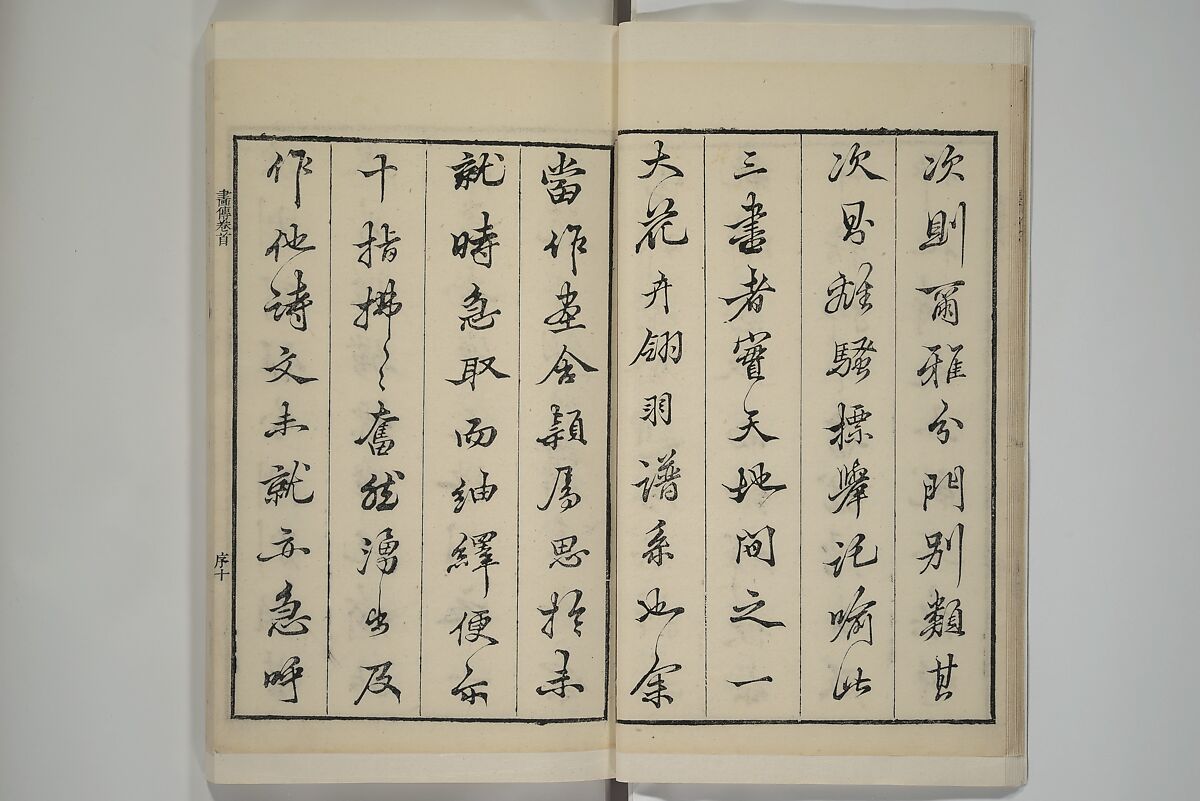 次則爾雅分門別類其
次離騷標舉託喻此
三書者實天地間之一
大花卉翎羽譜系也余
當作畫含穎屬思於未
就時急取而紬繹便
十指拂〻奮然湧出及
作他詩文未就亦急呼
畫傳卷首
序十